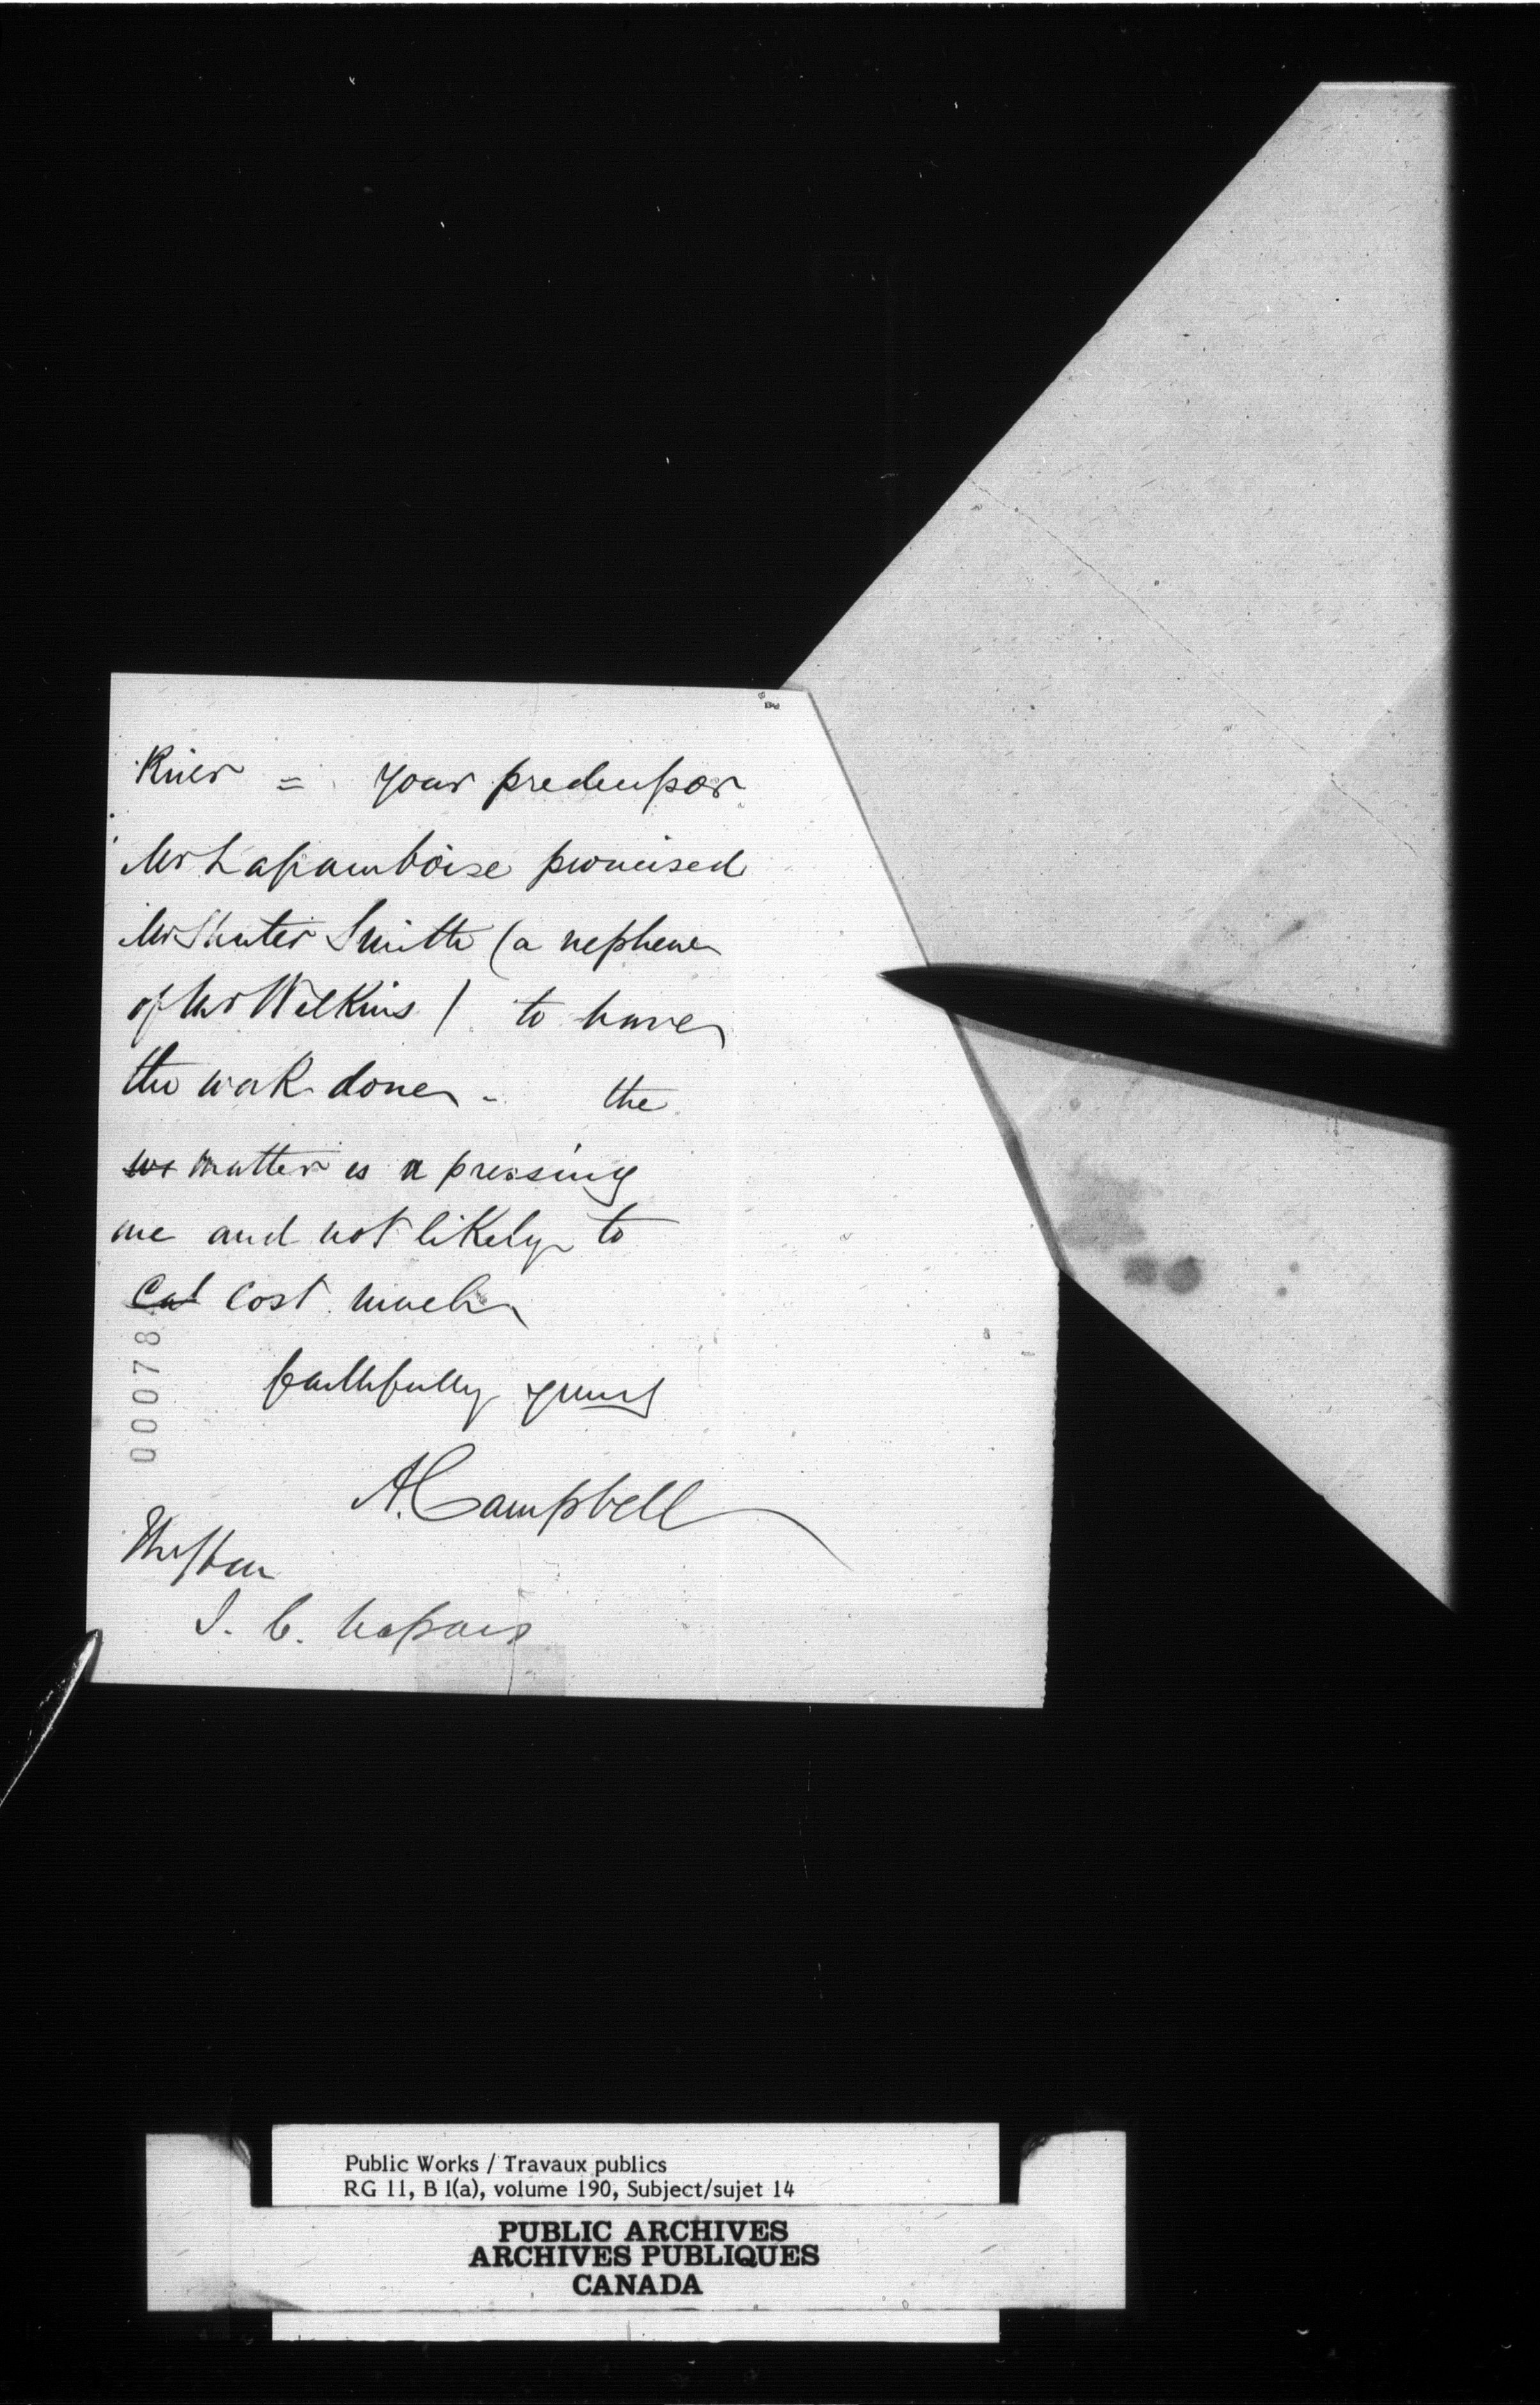 River = your predecessor
Mr Laframboise promised
Mr Shuter Smith (a nephew
of Mr Wilkins) to have
the work done - the
matter is a pressing
one and not likely to
cost much
faithfully yours
A. Campbell
The Hon
J. C. Chapais
00078
Public Works / Travaux publics
RG 11, B 1(a), volume 190, Subject/sujet 14
PUBLIC ARCHIVES
ARCHIVES PUBLIQUES
CANADA